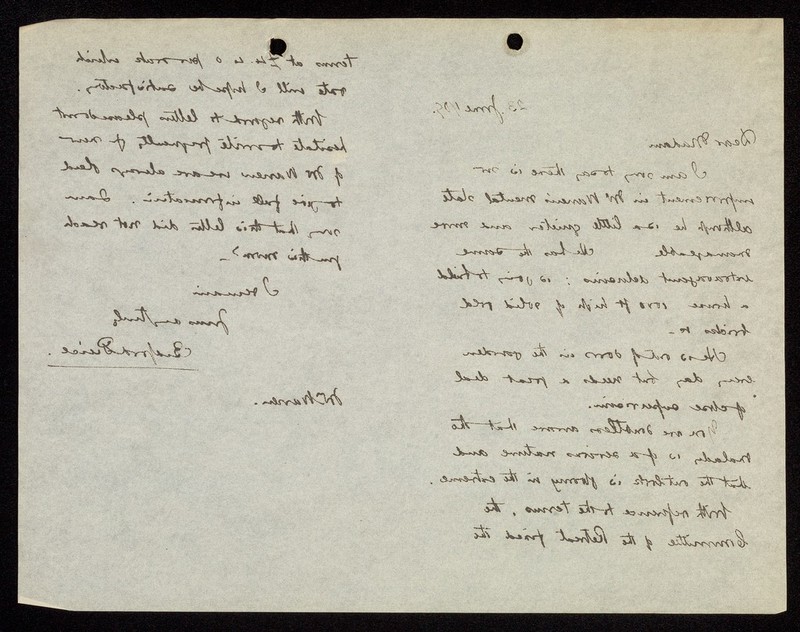 23 June 1909.
Dear Madam
I am sorry to say there is no
improvement in Mr Warren's mental state
although he is a little quieter and more
manageable He has the same
extravagant delusions : is going to build
a house 1000 ft high of solid gold
bricks &c -
He is out of doors in the garden
every day, but needs a great deal
of close supervision.
You are doubtless aware that the
malady is of a serious nature and
that the outlook is gloomy in the extreme.
With reference to the terms, the
Committee of the Retreat fixed the
terms at £4 4 0 per week which
rate will I hope be satisfactory.
With regard to letters please do not
hesitate to write frequently if news
of Mr Warren we are always glad
to give full information. I am
sorry that this letter did not reach
you this morng -
I remain
Yours very truly
Bedford Pierce.
Mrs Warren.